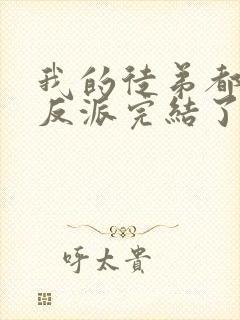 我的徒弟都
反派完結了
呼太貴